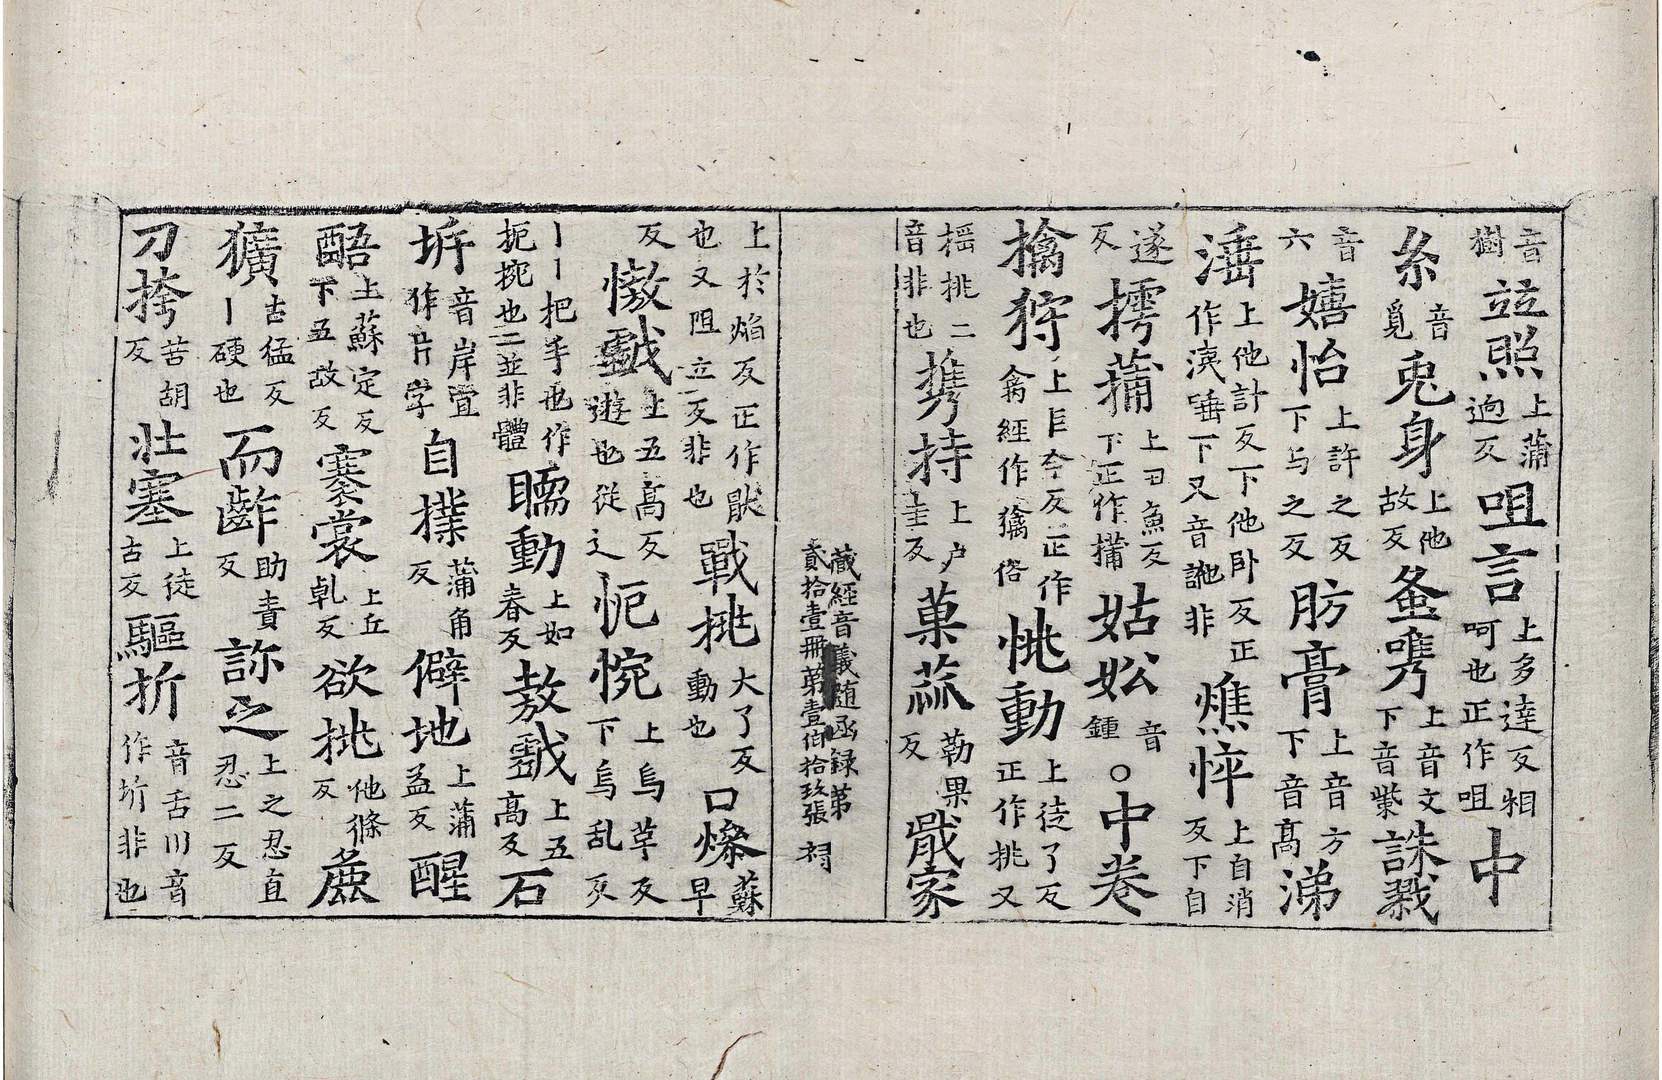 音樹竝照上蒲逈反咀言上多達反相呵也正作咀中
糸音覓兎身上他故反䖝嘴上音文下音紫誅戮
音六嬉怡上許之反下与之反肪膏上音方下音髙涕
涶上他計反下他卧反正作洟唾下又音訑非燋悴上自消反下自
遂反摴蒱上丑魚反下正作蒱姑妐音鍾○中卷
擒狩上巨今反正作禽經作𤡢俗恌動上徒了反正作挑又
摇挑二音非也携持上户圭反菓蓏勒果反戢家
藏經音義随函録第
貳拾壹冊第壹伯拾玖張 祠
上於焰反正作猒也又阻立反非也戰挑大了反動也口燥蘇早
反憿戲上五髙反遊也從辶㧖惋上烏革反下烏乱反
〡〡把手也作扼捥也二並非體瞤動上如春反敖戲上五髙反石
𡋯音岸宜作片学自撲蒲角反僻地上蒲益反醒
䣽上蘇定反下五故反褰裳上丘乹反欲挑他條反麁
獷古猛反〡硬也而齚助責反訴之上之忍直忍二反
刀挎苦胡反壯塞上徒古反驅折音舌川音作坼非也